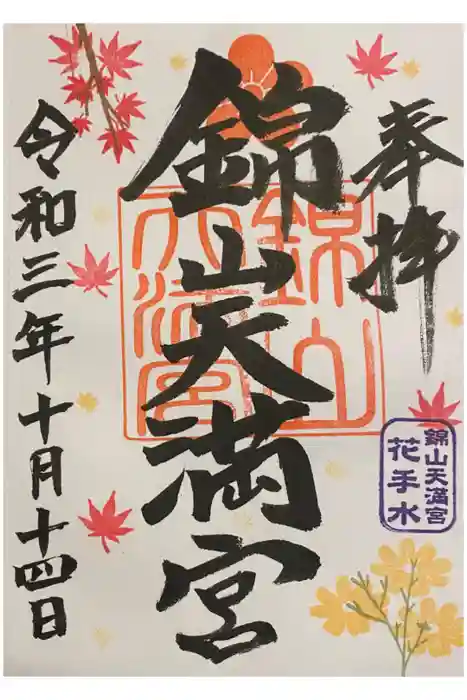 奉拝
錦山天満宮
令和三年十月十四日
錦山天満宮
錦山天満宮
花手水